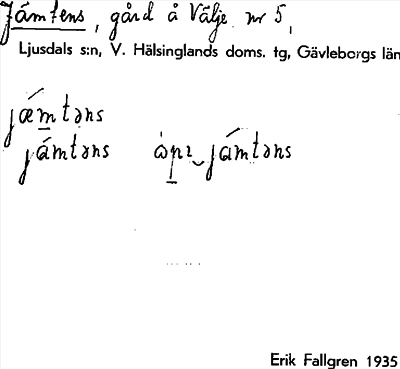 Jämtens, gård å Välje nr 5,
Ljusdals s:n, V. Hälsinglands doms. tg, Gävleborgs län
jæmtəns
jämtəns åpɪ‿jämtəns
Erik Fallgren 1935